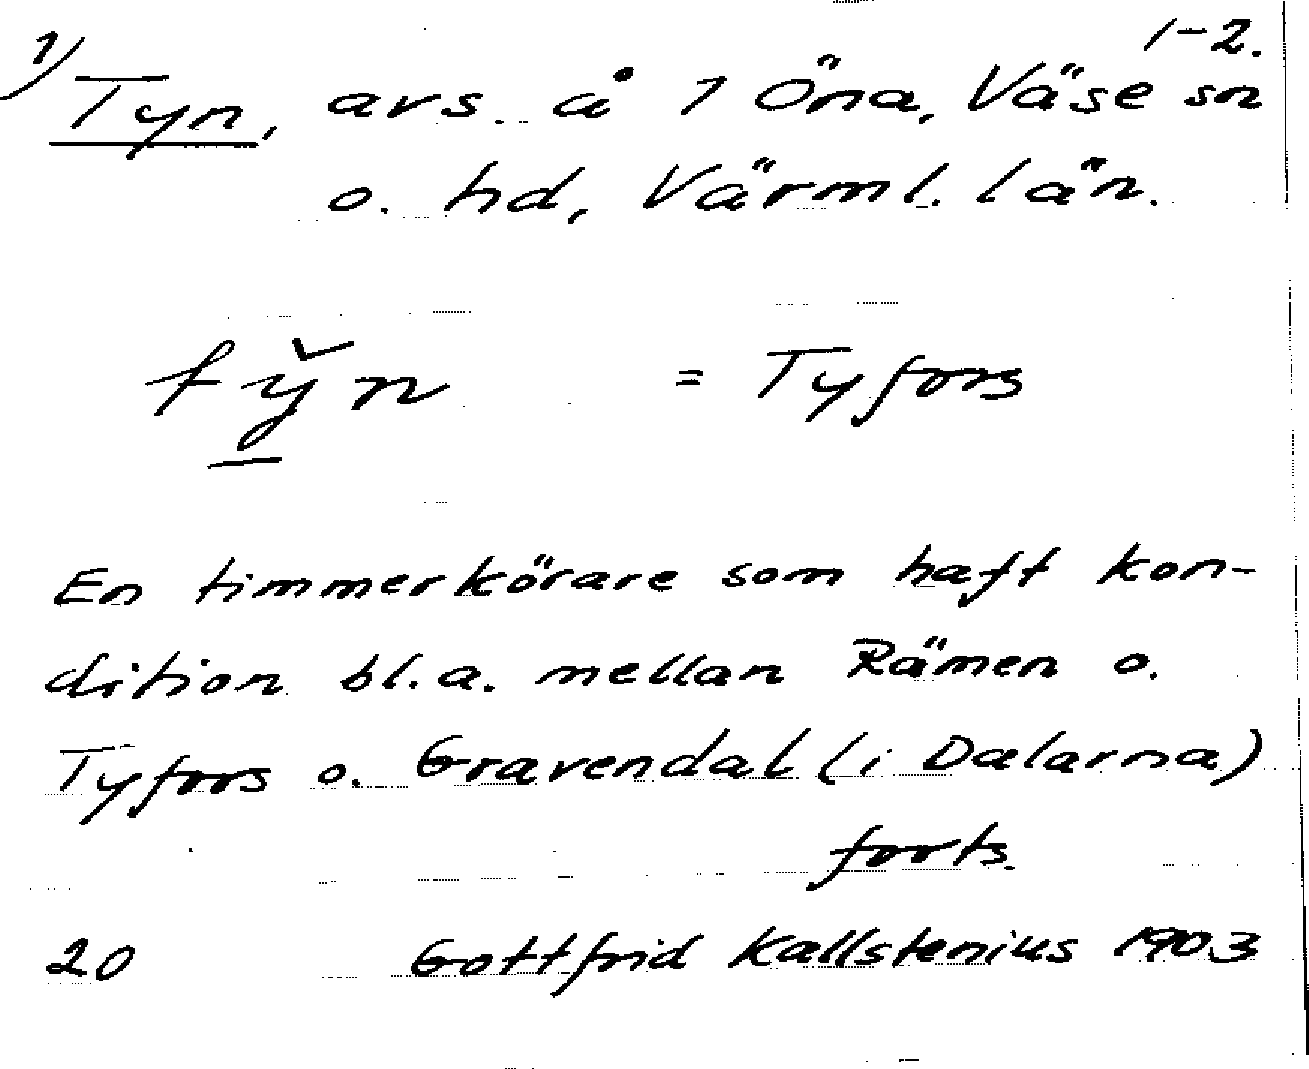 1) 1-2.
Tyn, avs. å 1 Öna, Väse sn
o. hd, Värml. län.
= Tyfors
En timmerkörare som haft kon-
dition bl.a. mellan Rämen o.
Tyfors o. Gravendal (i Dalarna)
forts.
20 Gottfrid Kallstenius 1903